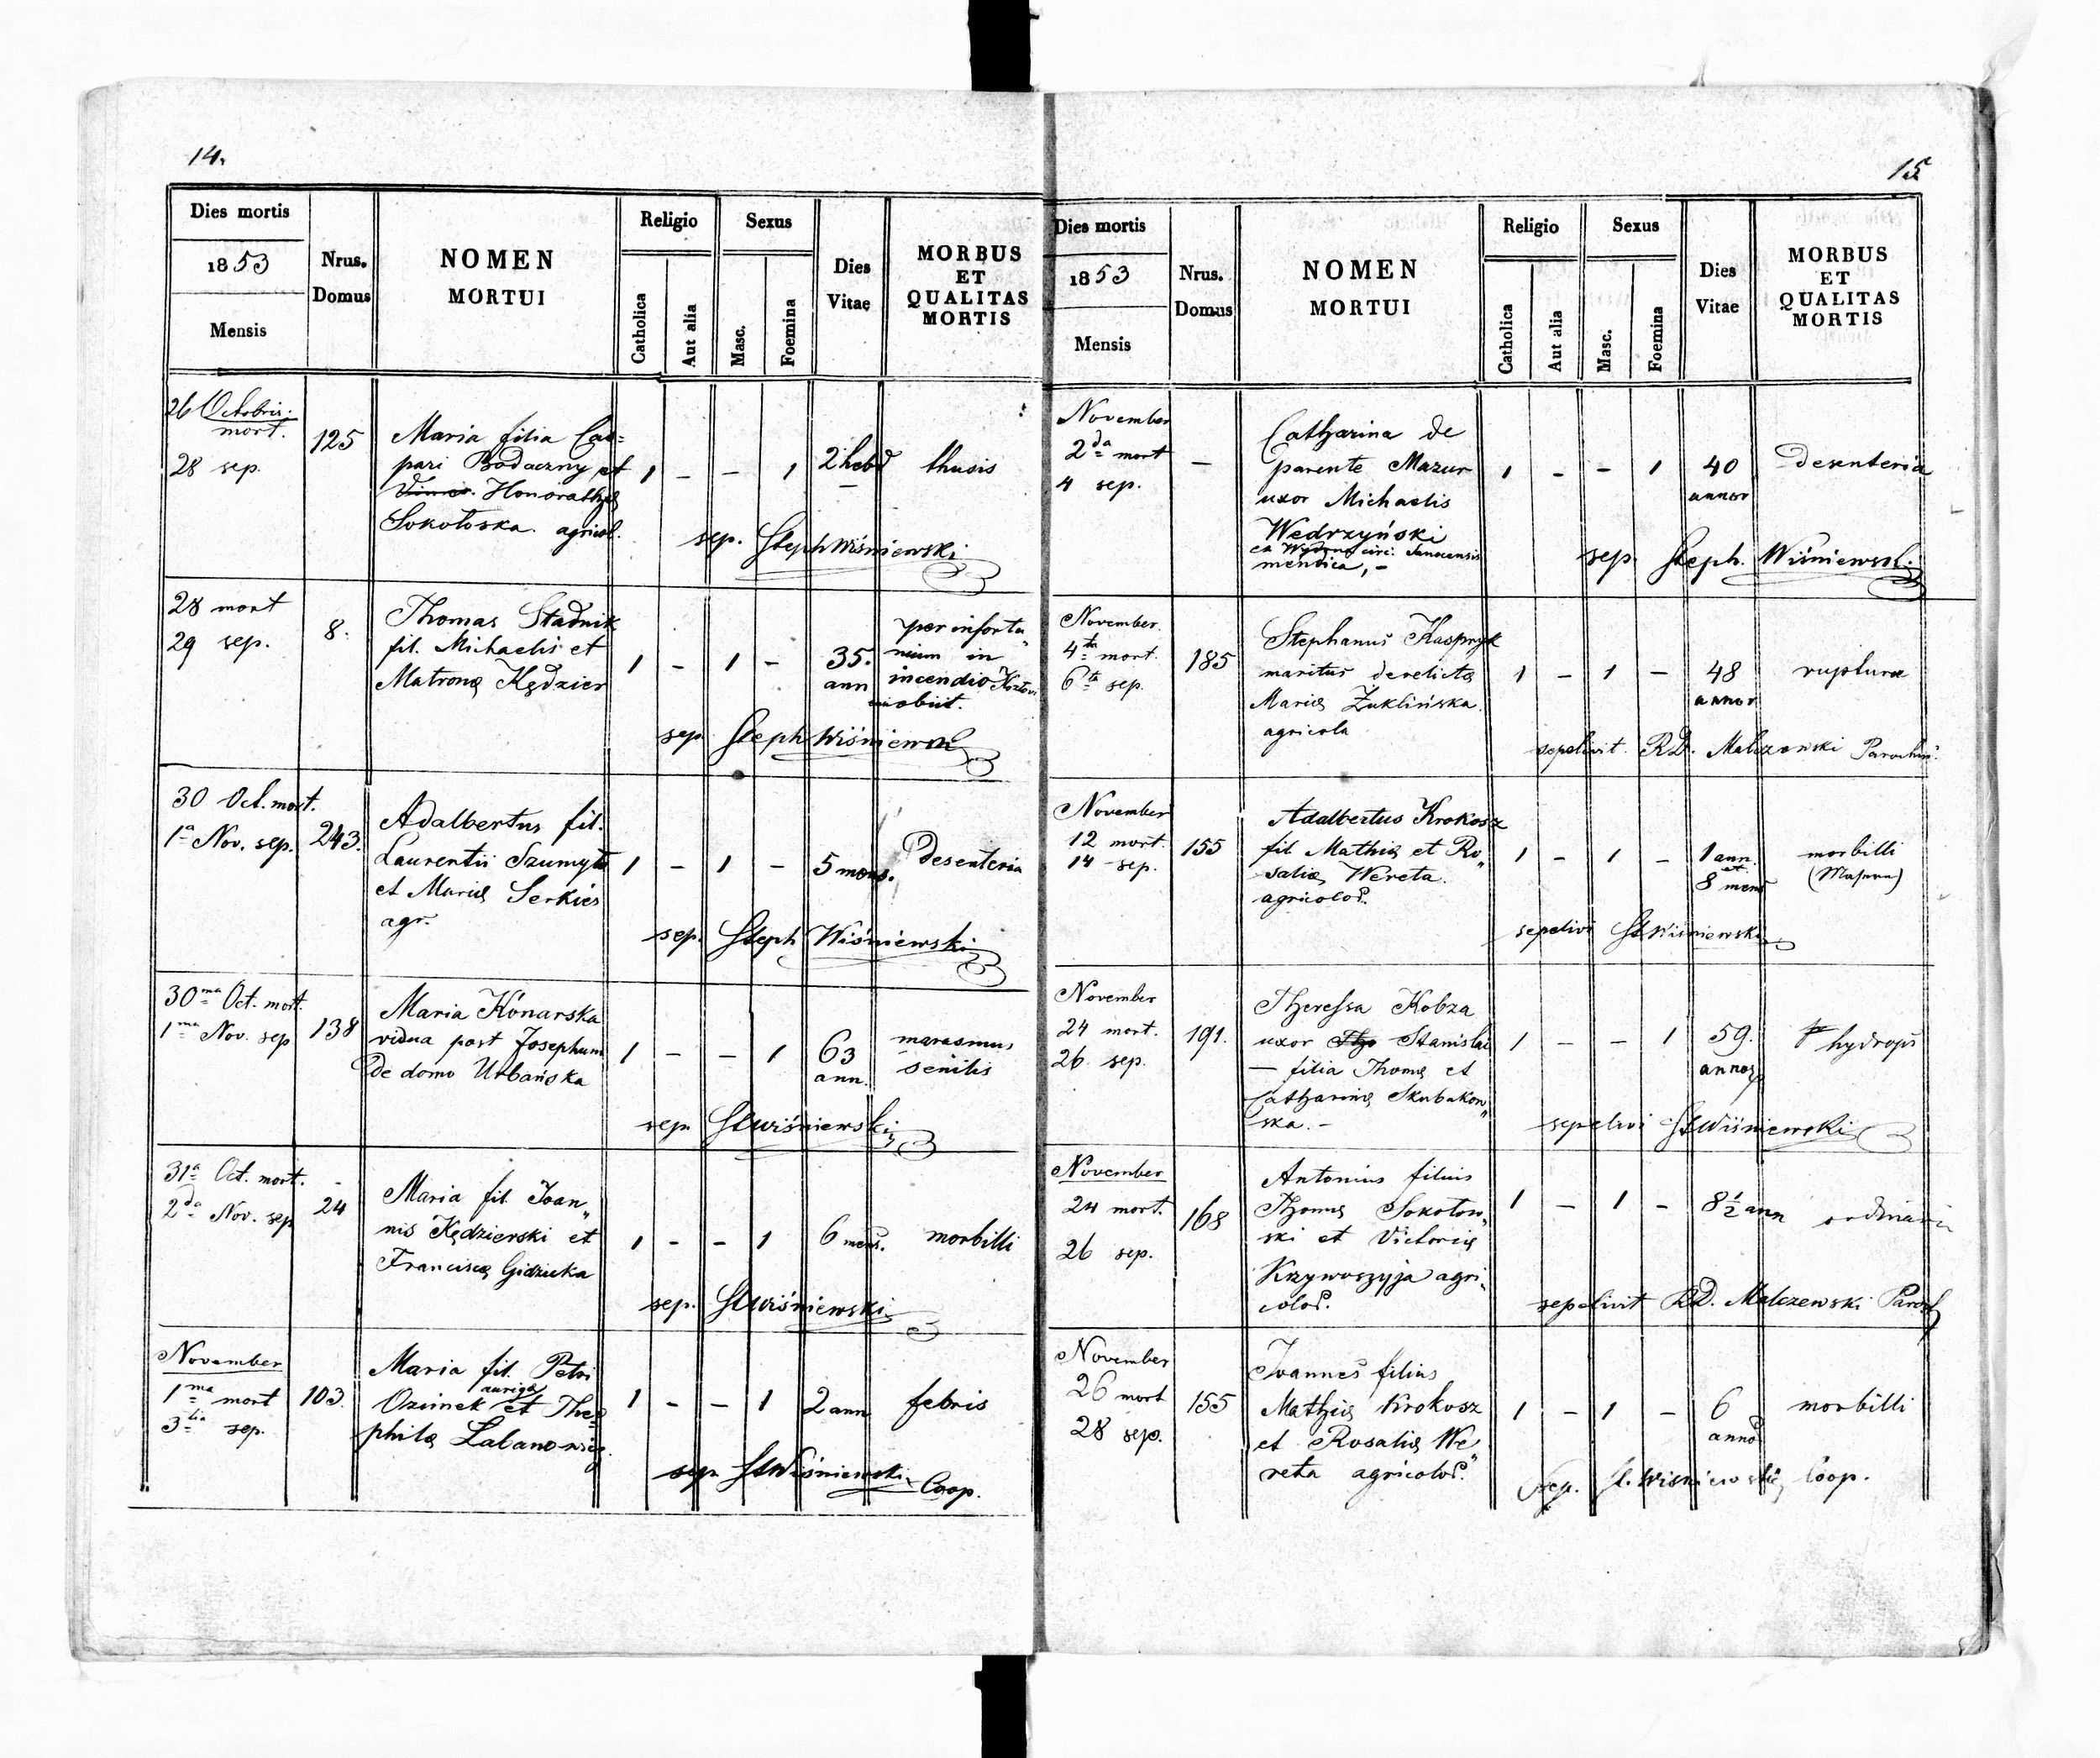 14.
Dies mortis
1853
Mensis
Nrus.
Domus
NOMEN
MORTUI
Religio
Catholica
Aut alia
Sexus
Masc.
Foemina
Dies
Vitae
MORBUS
ET
QUALITAS
MORTIS
26 Octobris.
mort.
28 sep.
125
Maria filia Cas=
pari Bodaczny et
Honorathæ
Sokołoska. agricol.
1 - - 1
2 hebd
thusis
sep. Steph Wiśniewski
28 mort
29 sep.
8.
Thomas Stadnik
fil. Michaelis et
Matronę Kędzier
1 - 1 -
35.
ann
per infortu„
nium in
incendio
obiit.
sep Steph Wiśniewski
30 Oct. mort.
1a Nov. sep.
243.
Adalbertus fil.
Laurentii Szumyło
et Marię Serkiés
agr.
1 - 1 -
5 mens.
Desenteria
sep. Steph Wiśniewski
30ma Oct. mort.
1ma Nov. sep
138
Maria Kónarska
vidua post Josephum
De domo Urbańska
1 - - 1
63
ann.
marasmus
senilis
sep StWiśniewski
31a Oct. mort.
2da Nov. sep
24
Maria fil. Joan„
nis Kędzierski et
Franciscę Gidzicka
1 - - 1
6 mens.
morbilli
sep. StWiśniewski
November
1ma mort
3tia sep.
103.
Maria fil. Petri
aurigæ
Ozimek et The=
philę Labanowicz
1 - - 1
2 ann
febris
sep StWiśniewski Coop.
15
Dies mortis
1853
Mensis
Nrus.
Domus
NOMEN
MORTUI
Religio
Catholica
Aut alia
Sexus
Masc.
Foemina
Dies
Vitae
MORBUS
ET
QUALITAS
MORTIS
November
2da mort
4 sep.
-
Catharina de
parente Mazur
uxor Michaelis
Wedrzyński
ex circ: Sanocensis
mendica, -
1 - - 1
40
annor
desenteria
sep Steph. Wiśniewski
November.
4ta mort.
6ta sep.
185
Stephanus Kaspryk
maritus derelictę
Marię Żuklińska.
agricola
1 - 1 -
48
annor
ruptura
sepelivit RD. Malczewski Parochus.
November
12 mort.
14 sep.
155
Adalbertus Krokosz
fil Mathię et Ro„
salię Wereta.
agricolor.
1 - 1 -
1 ann.
et
8 mens
morbilli
sepelivi StWiśniewski
November
24 mort.
26 sep.
191.
Theressa Kobza
uxor Stanislai
— filia Thomę et
Catharinę Skubakow„
ska. -
1 - - 1
59.
annor
hydrops
sepelivi StWiśniewski
November
24 mort.
26 sep.
168
Antonius filius
Thomę Sokołow„
ski et Victorię
Krzywoszyja agri„
color.
1 - 1 -
8 1/2 ann
ordinaria
sepelivit RD. Malczewski Paroch
November
26 mort
28 sep.
155
Joannes filius
Mathię Krokosz
et Rosalię We„
reta agricolor.
1 - 1 -
6
annor
morbilli
Sep. St. Wiśniewski Coop.